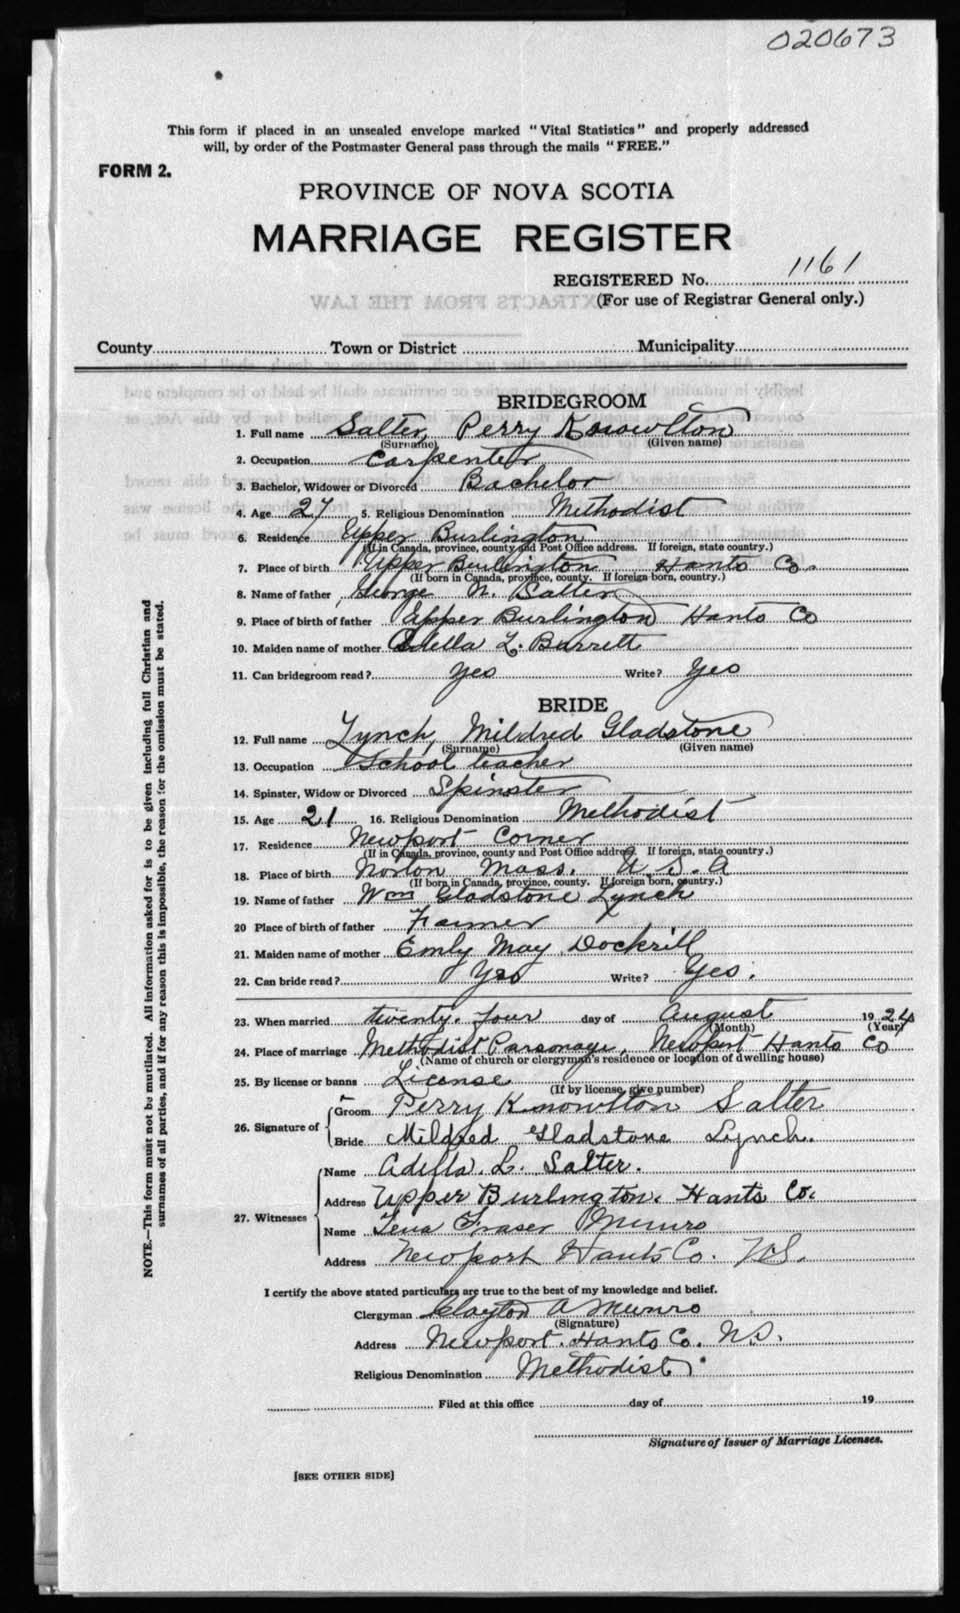 020673
This form if placed in an unsealed envelope marked "Vital Statistics" and properly addressed
will, by order of the Postmaster General pass through the mails "FREE."
FORM 2.
PROVINCE OF NOVA SCOTIA
MARRIAGE REGISTER
REGISTERED No. 1161
(For use of Registrar General only.)
County Town or District Municipality
BRIDEGROOM
1. Full name Salter, Perry Knowlton
(Surname) (Given name)
2. Occupation Carpenter
3. Bachelor, Widower or Divorced Bachelor
4. Age 27 5. Religious Denomination Methodist
6. Residence Upper Burlington
(If in Canada, province, county and Post Office address. If foreign, state country.)
7. Place of birth Upper Burlington Hants Co.
(If born in Canada, province, county. If foreign born, country.)
8. Name of father George N. Salter
9. Place of birth of father Upper Burlington Hants Co
10. Maiden name of mother Adella L. Burrett
11. Can bridegroom read? Yes Write? Yes
BRIDE
12. Full name Lynch, Mildred Gladstone
(Surname) (Given name)
13. Occupation School teacher
14. Spinster, Widow or Divorced Spinster
15. Age 21 16. Religious Denomination Methodist
17. Residence Newport Corner
(If in Canada, province, county and Post Office address. If foreign, state country.)
18. Place of birth Norton Mass. U.S.A
(If born in Canada, province, county. If foreign born, country.)
19. Name of father Wm Gladstone Lynch
20 Place of birth of father Farmer
21. Maiden name of mother Emly May Dockrill
22. Can bride read? Yes Write? Yes.
23. When married twenty. four day of August 1924
(Month) (Year)
24. Place of marriage Methodist Parsonage, Newport Hants Co
(Name of church or clergyman's residence or location of dwelling house)
25. By license or banns License
(If by license, give number)
26. Signature of Groom Perry Knowlton Salter
Bride Mildred Gladstone Lynch.
27. Witnesses Name Adella. L. Salter.
Address Upper Burlington. Hants Co.
Name Tena Fraser Munro
Address Newport Hants Co. N.S.
I certify the above stated particulars are true to the best of my knowledge and belief.
Clergyman Clayton A Munro
(Signature)
Address Newport. Hants Co. N.S.
Religious Denomination Methodist
Filed at this office day of 19
Signature of Issuer of Marriage Licenses.
[SEE OTHER SIDE]
NOTE.—This form must not be mutilated. All information asked for is to be given including full Christian and
surnames of all parties, and if for any reason this is impossible, the reason for the omission must be stated.